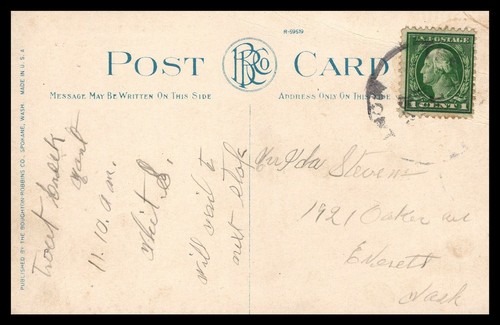 H-59519
POST CARD
BRCo
MESSAGE MAY BE WRITTEN ON THIS SIDE
ADDRESS ONLY ON THIS SIDE
PUBLISHED BY THE BOUGHTON-ROBBINS CO., SPOKANE, WASH. MADE IN U.S.A.
U.S. POSTAGE
1 CENT 1
Trout Creek
Mont
11.10. a.m.
Will mail to
next stop
Ida Stevens
1921 Oakes ave
Everett
Wash